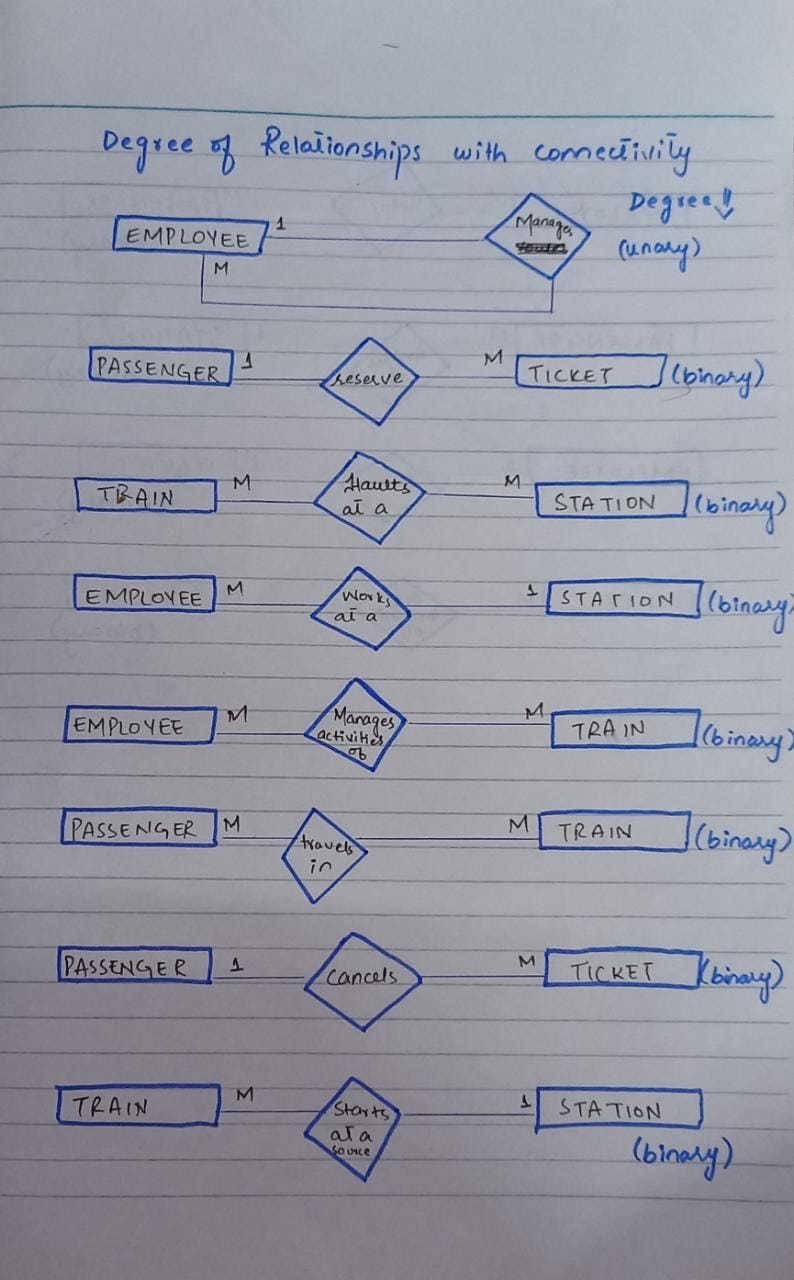 Degree of Relationships with connectivity
Degree!!
EMPLOYEE 1 Manages (unary)
M
PASSENGER 1 reserve M TICKET (binary)
TRAIN M Haults M STATION (binary)
at a
EMPLOYEE M Works 1 STATION (binary)
at a
EMPLOYEE M Manages M TRAIN (binary)
activities
of
PASSENGER M travels M TRAIN (binary)
in
PASSENGER 1 Cancels M TICKET (binary)
TRAIN M Starts 1 STATION
at a
source
(binary)